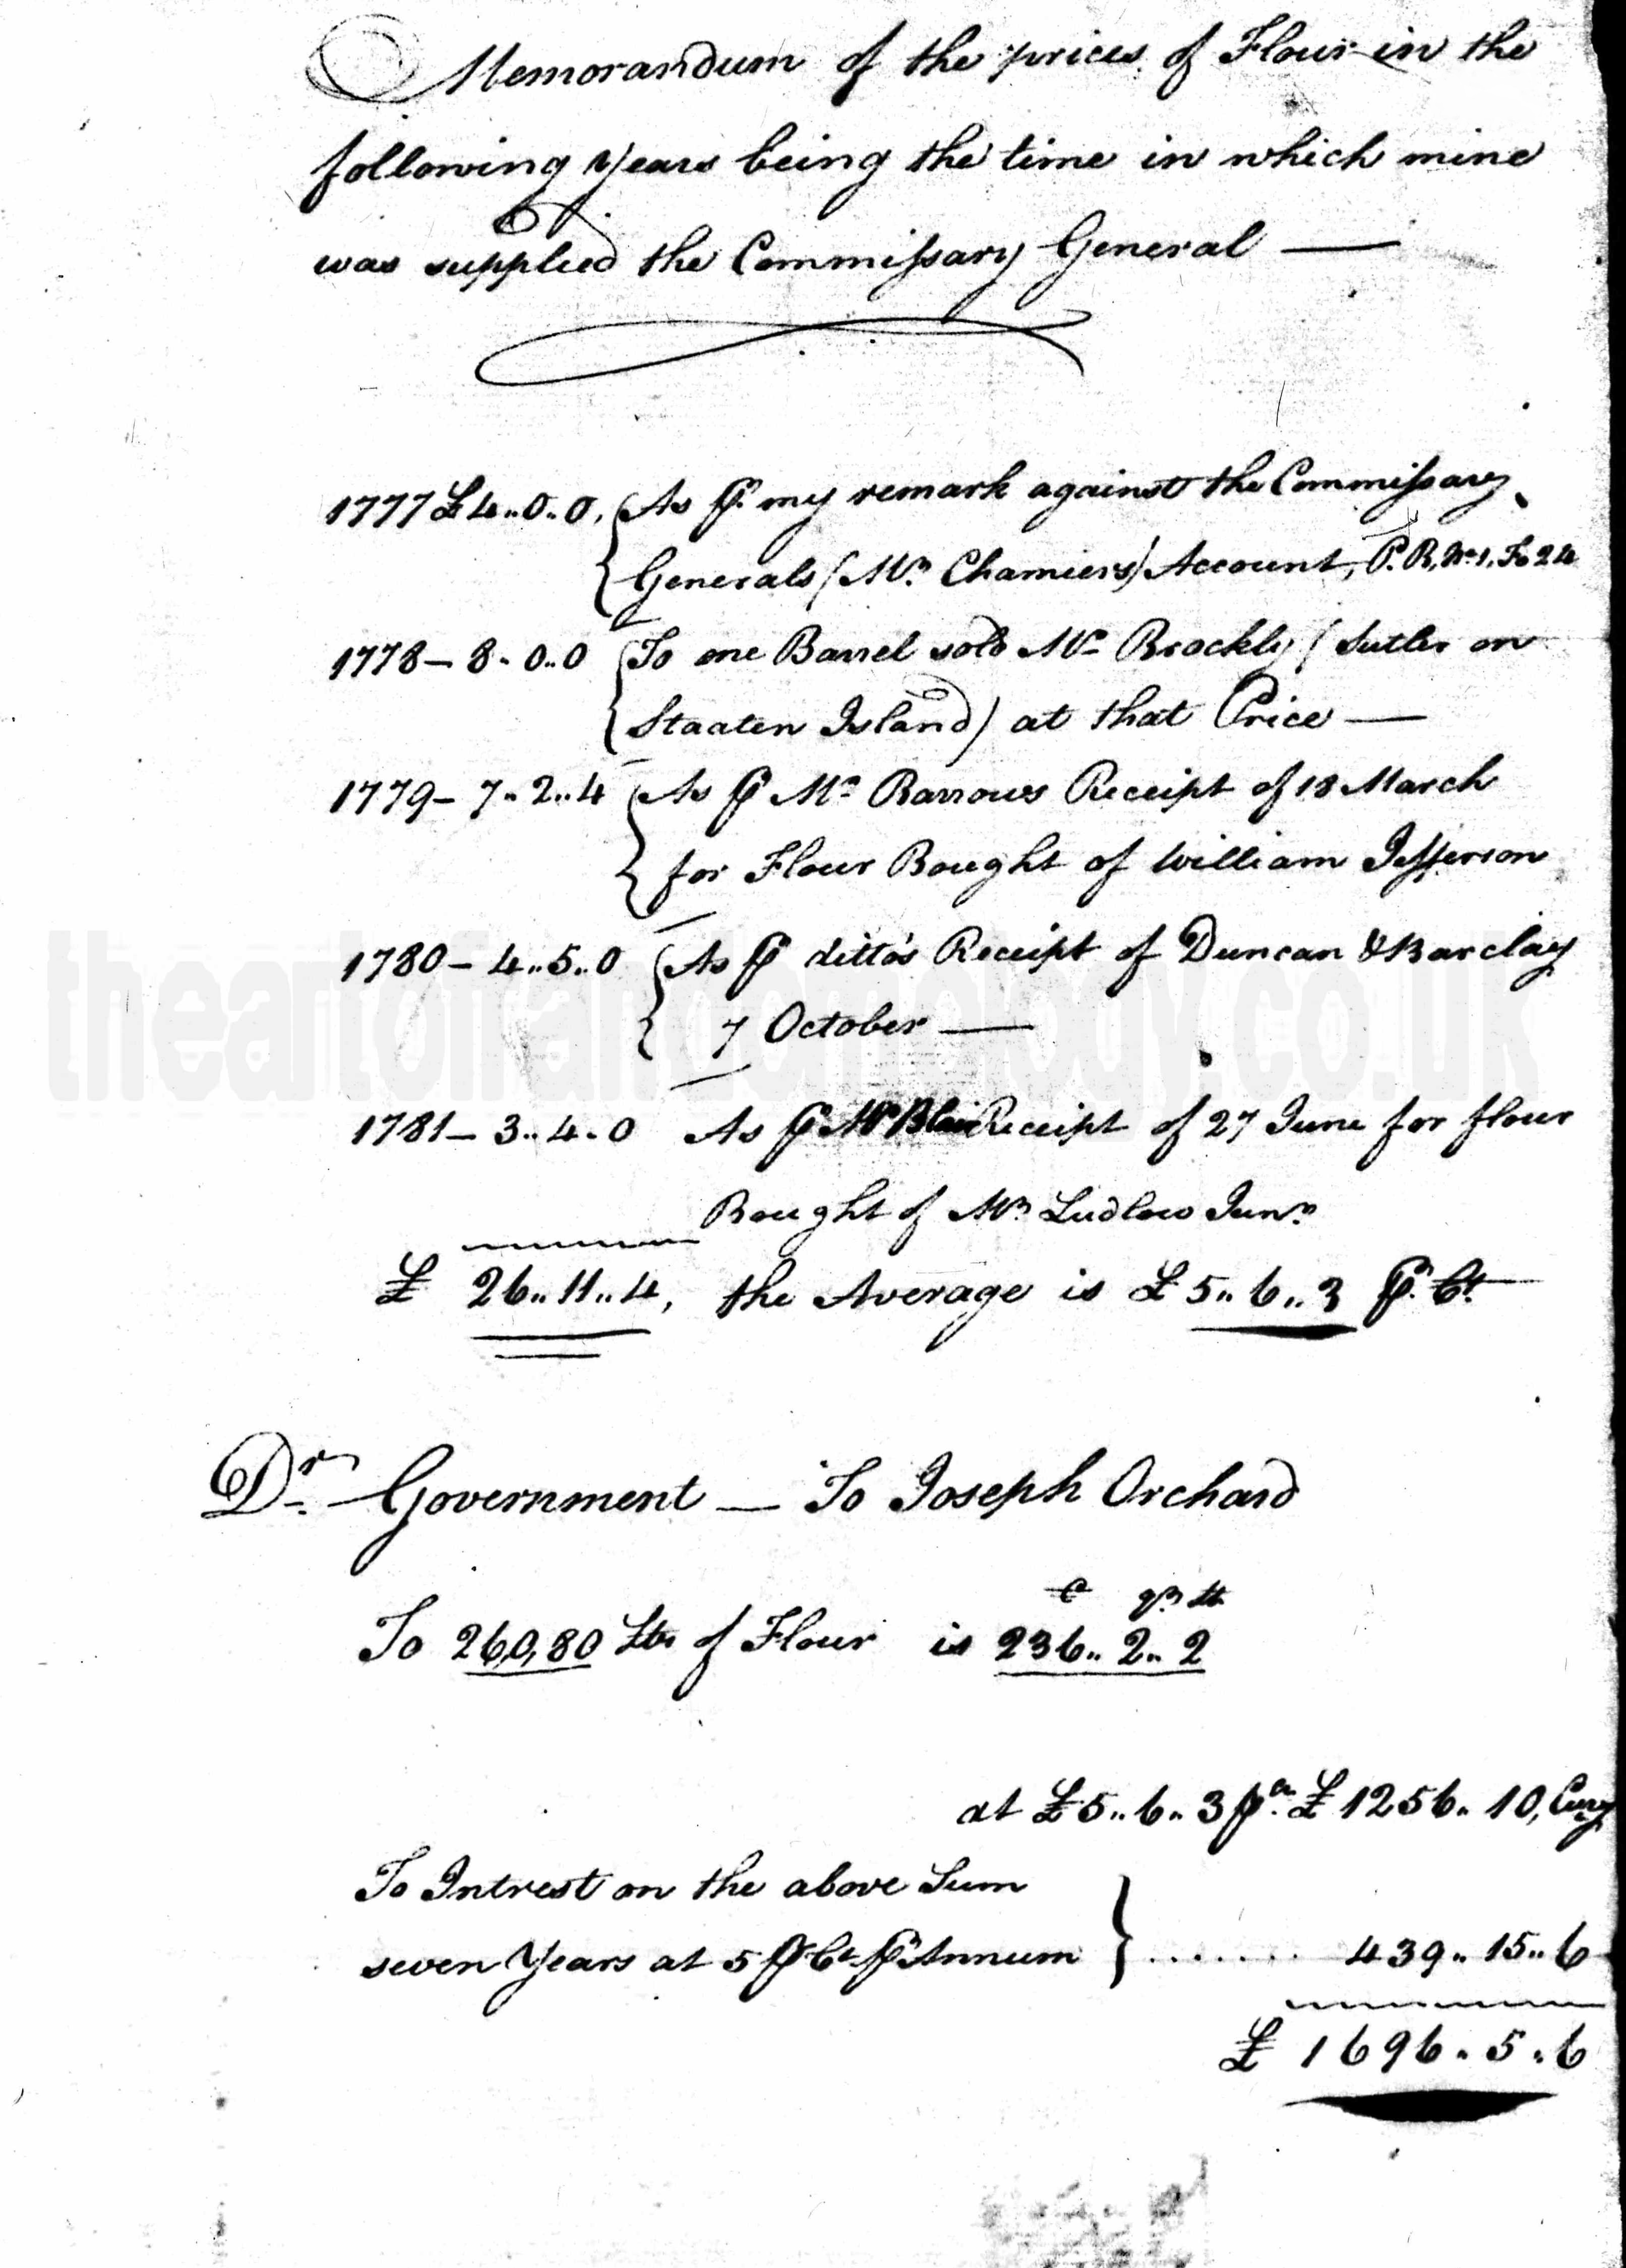 Memorandum of the prices of Flour in the
following Years being the time in which mine
was supplied the Commissary General —
1777 £4..0..0. As ⅌ my remark against the Commissary
Generals (Mr. Chamiers) Account, P. R, No. 1. Fo 24
1778 – 8..0..0 To one Barrel sold Mr Brockly (Sutler on
Staaten Island) at that Price —
1779 – 7..2..4 As ⅌ Mr Barrows Receipt of 18 March
for Flour Bought of William Jefferson
1780 – 4..5..0 As ⅌ ditto's Receipt of Duncan & Barclay
7 October —
theartofrandomology.co.uk
1781 – 3..4..0 As ⅌ Mr Blair Receipt of 27 June for flour
Bought of Mr. Ludlow Junr.
£ 26..11..4, the Average is £5..6..3 ⅌. Ct.
Dr. – Government — To Joseph Orchard
C qrs lb
To 260,80 Lbs of Flour is 236..2..2
at £5..6..3 ⅌ Ct. £1256..10, Curry
To Intrest on the above Sum
seven Years at 5 ⅌ Ct ⅌ Annum ....... 439..15..6
£ 1696..5..6